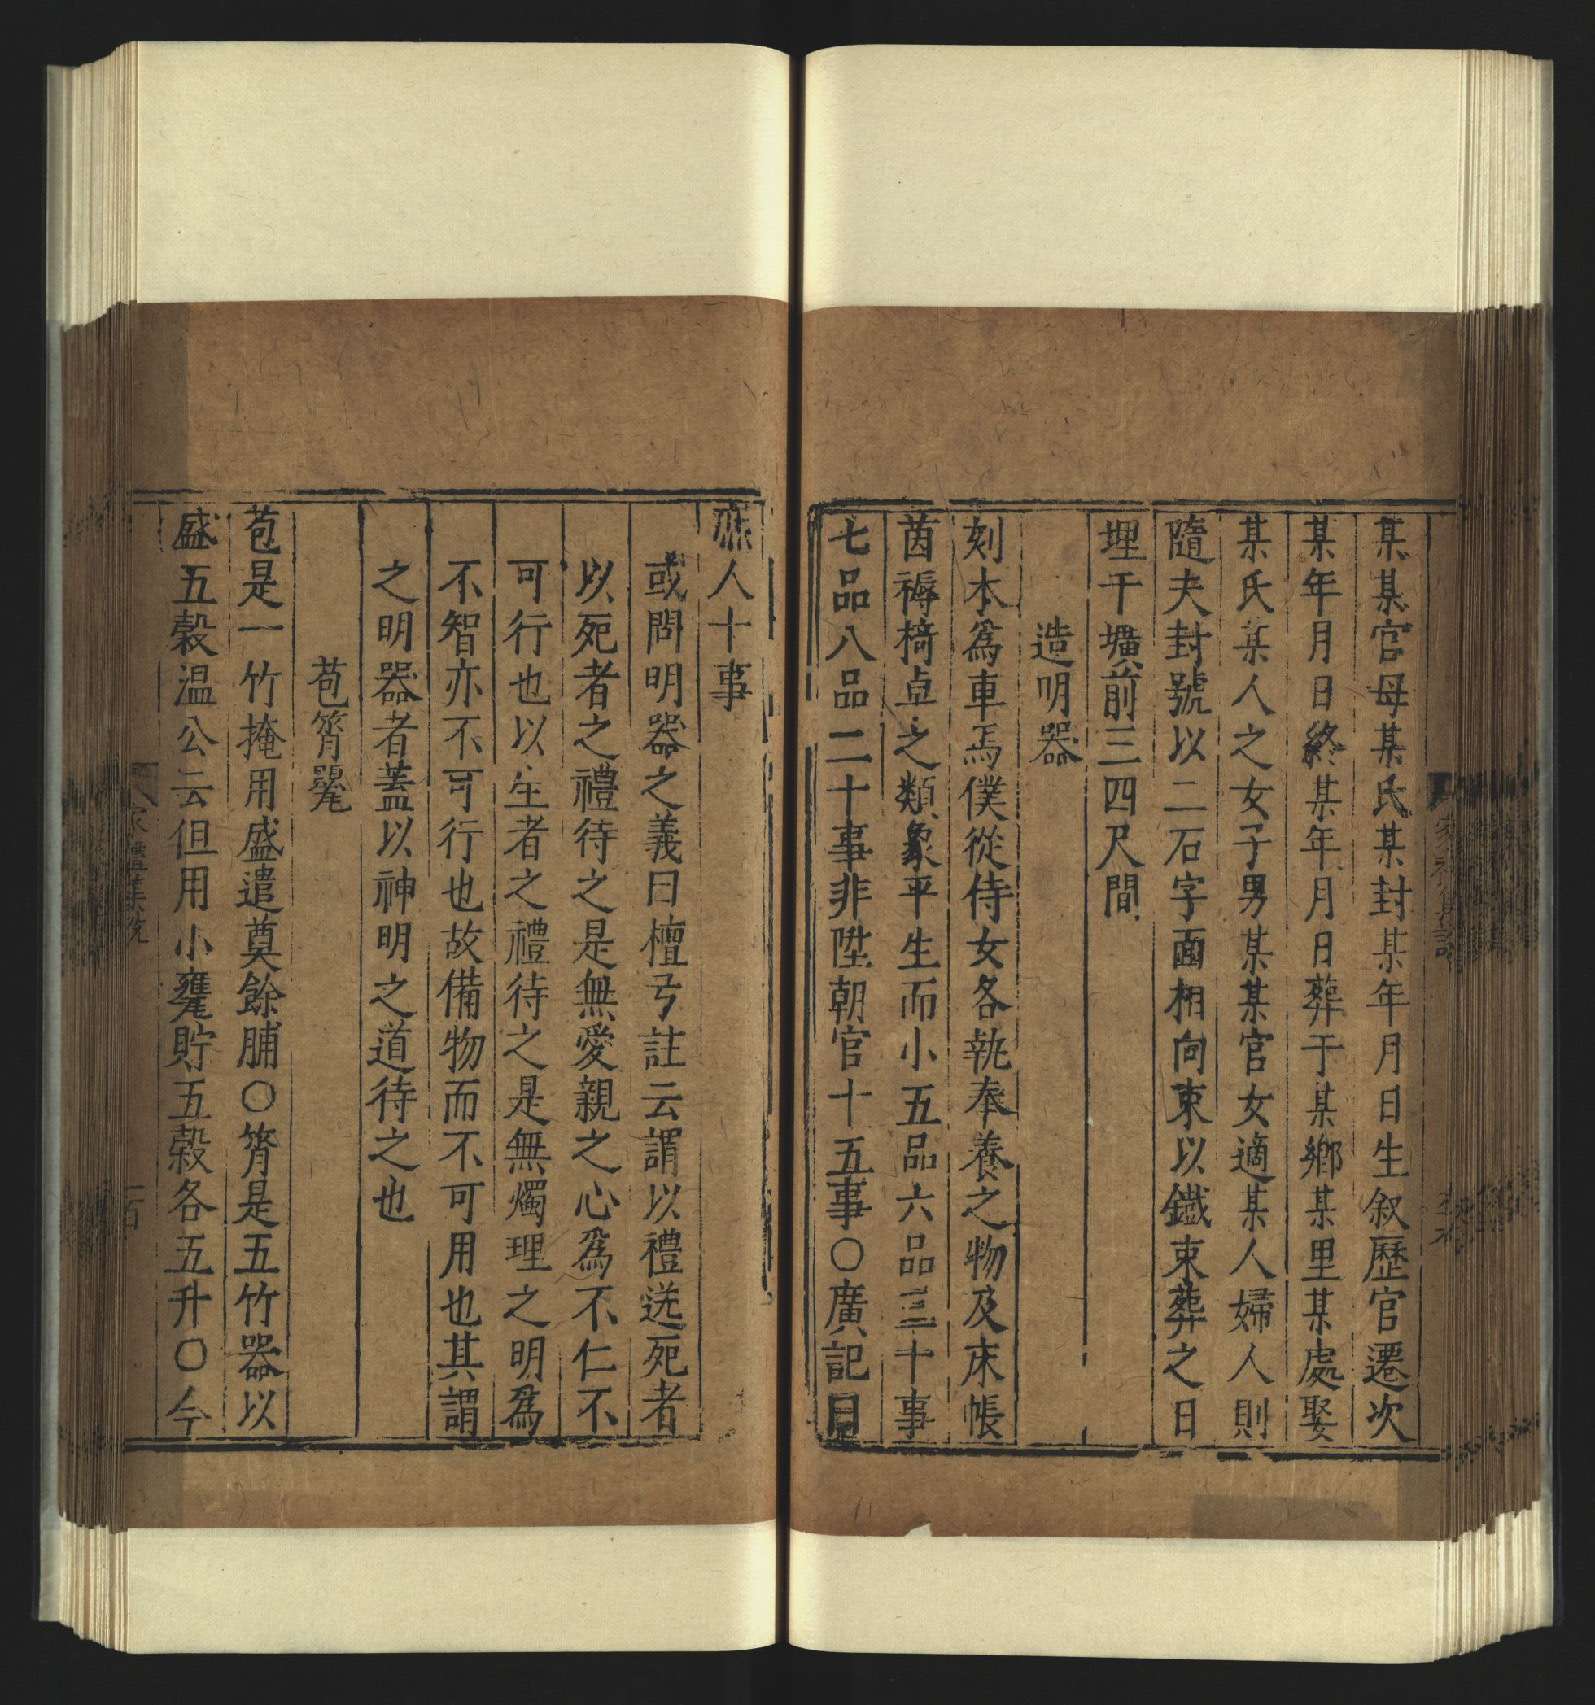 某某官母某氏某封某年月日生叙歷官遷次
某年月日終某年月日葬于某鄉某里某處娶
某氏某人之女子男某某官女適某人婦人則
隨夫封號以二石字面相向束以鐵束葬之日
埋于壙前三四尺間
造明器
刻木爲車馬僕從侍女各執奉養之物及床帳
茵褥椅卓之類象平生而小五品六品三十事
七品八品二十事非陞朝官十五事○廣記曰
庶人十事
或問明器之義曰檀弓註云謂以禮送死者
以死者之禮待之是無愛親之心爲不仁不
可行也以生者之禮待之是無燭理之明爲
不智亦不可行也故備物而不可用也其謂
之明器者蓋以神明之道待之也
苞筲甖
苞是一竹掩用盛遣奠餘脯○筲是五竹器以
盛五穀温公云但用小甕貯五穀各五升○今
家禮集說